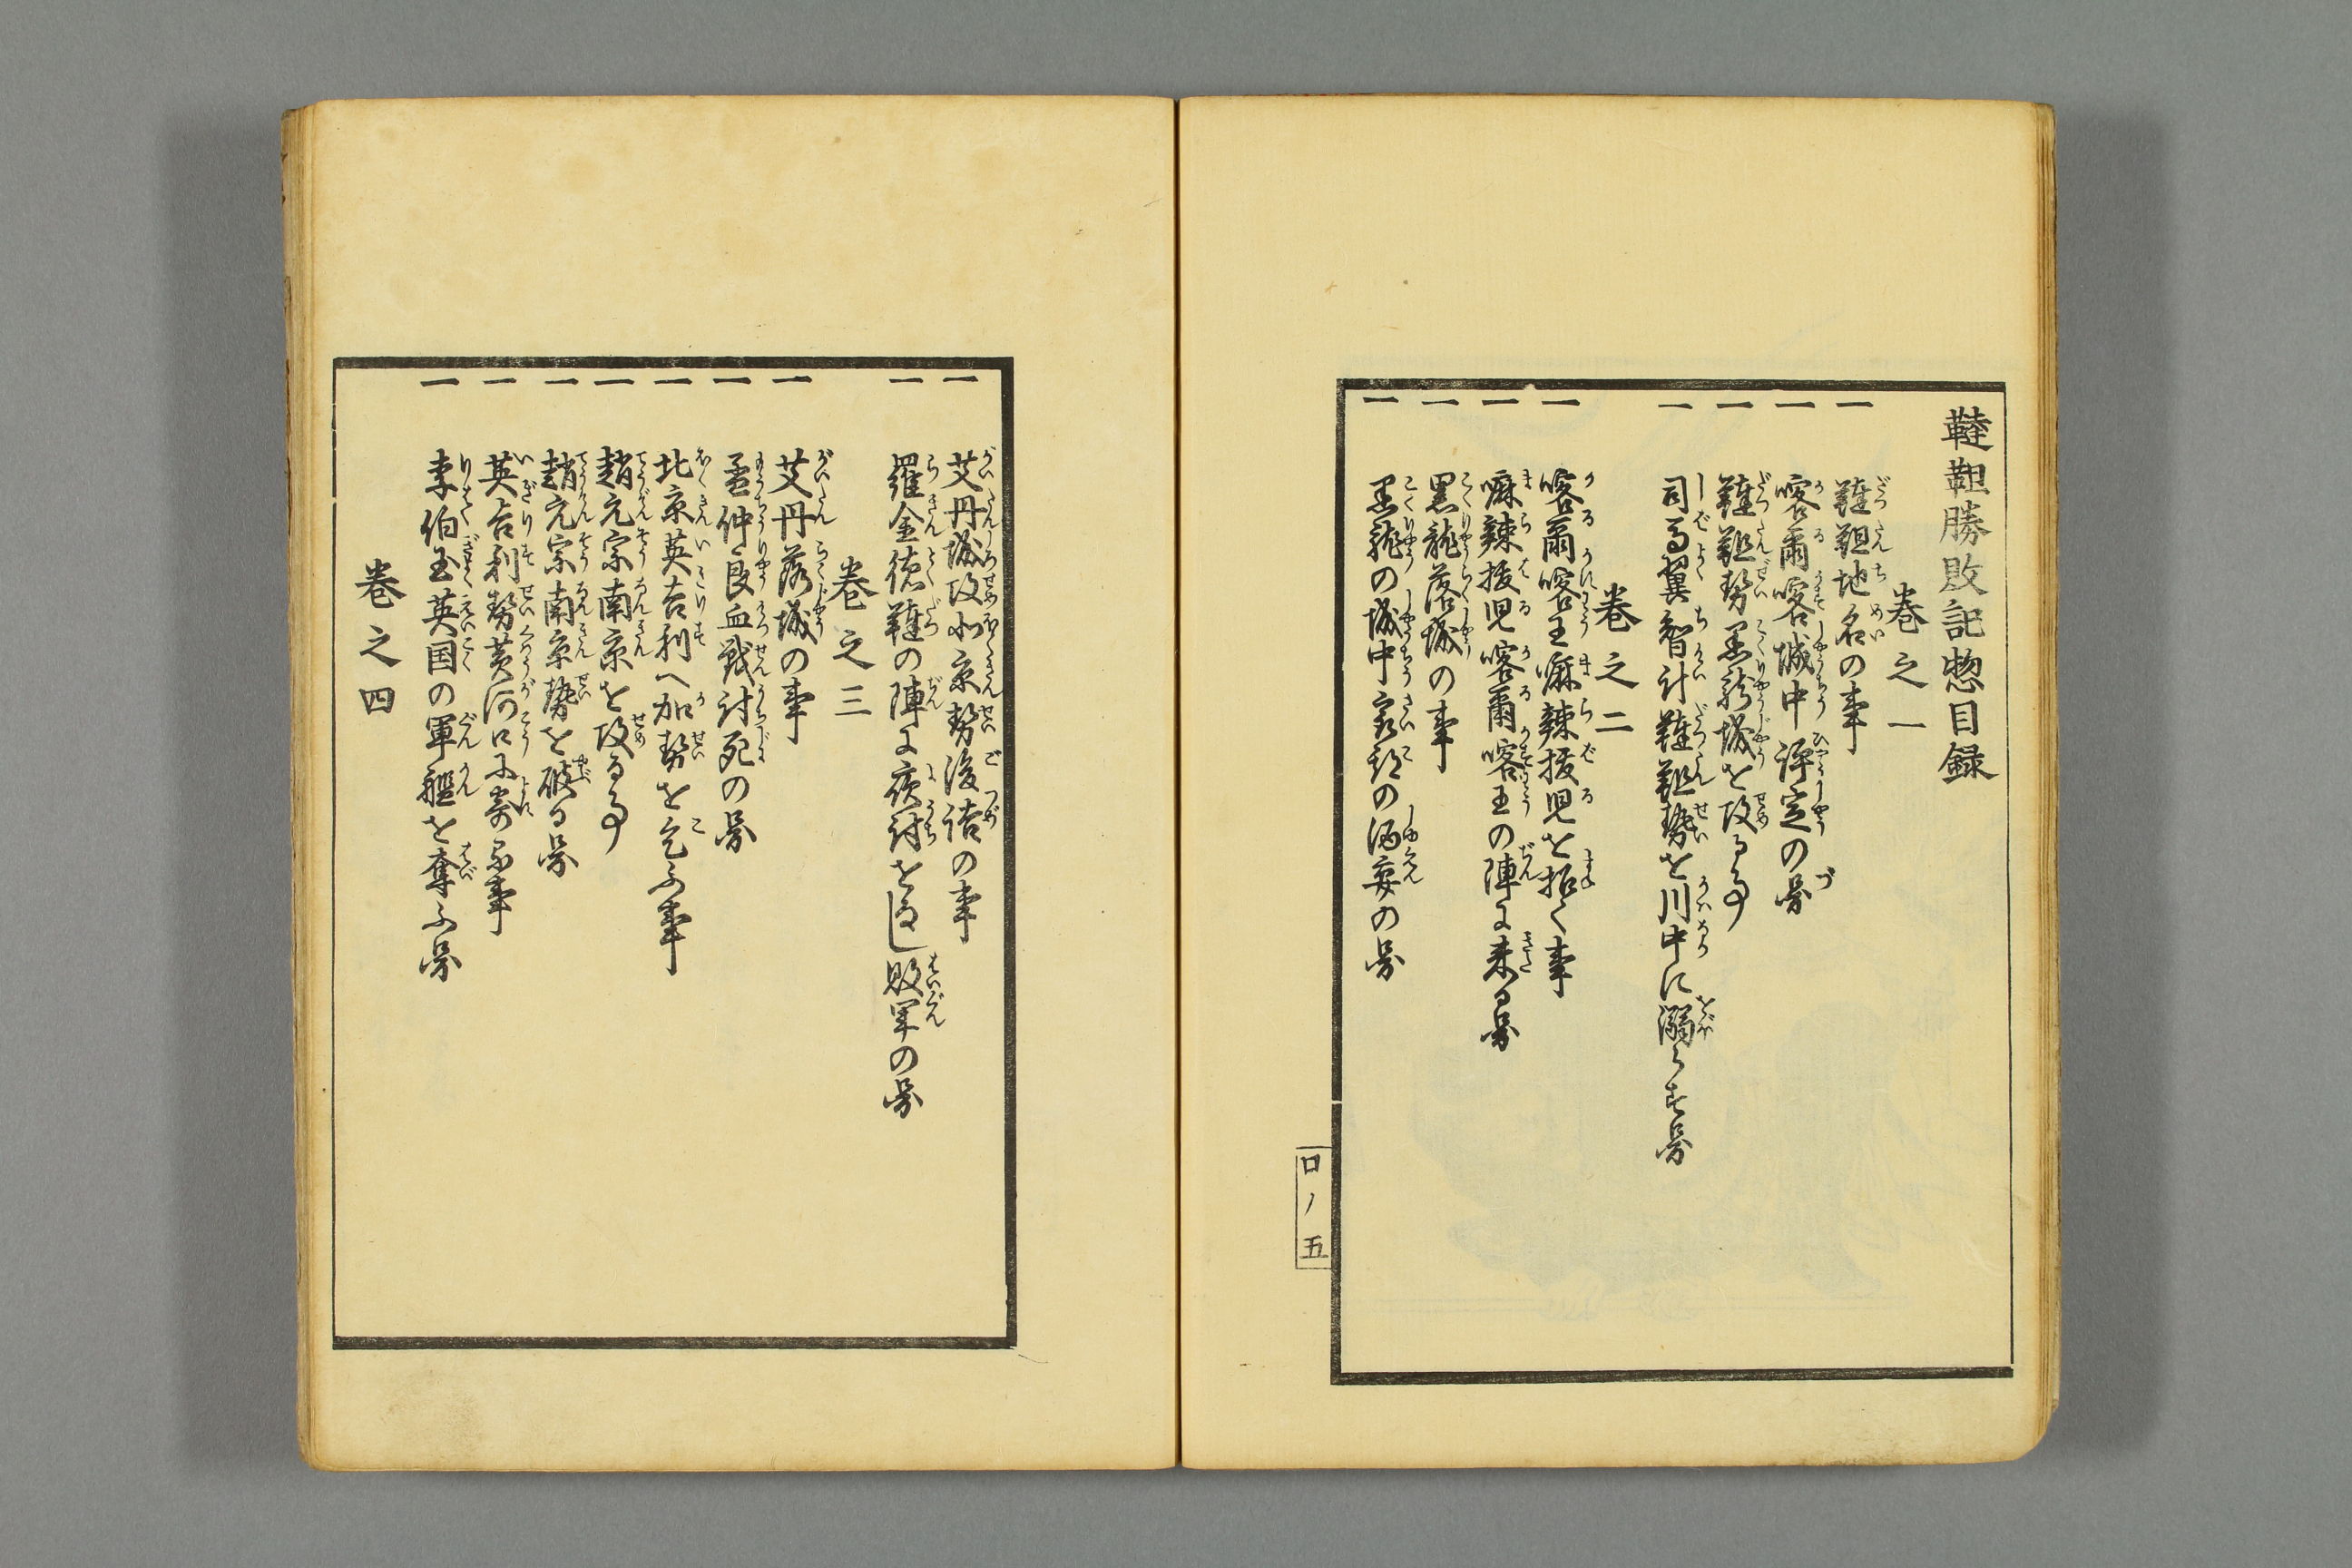 韃靼勝敗記惣目録
巻之一
一 韃靼地名の事
一 喀爾喀城中評定の図
一 韃靼勢黒龍城を攻る事
一 司馬翼智計韃靼勢を川中に溺らす図
巻之二
一 喀爾喀王嘛辣拔児を招く事
一 嘛辣拔児喀爾喀王の陣に来る図
一 黒龍落城の事
一 黒龍の城中の酒宴の図
口ノ五
一 艾丹城攻北京勢後詰の事
一 羅金徳韃の陣に夜討をなし敗軍の図
巻之三
一 艾丹落城の事
一 孟仲良血戦討死の図
一 北京英吉利へ加勢を乞ふ事
一 趙元宗南京を攻る事
一 趙元宗南京勢を破る図
一 英吉利勢黄河口に寄る事
一 李伯玉英国の軍艦を奪ふ図
巻之四